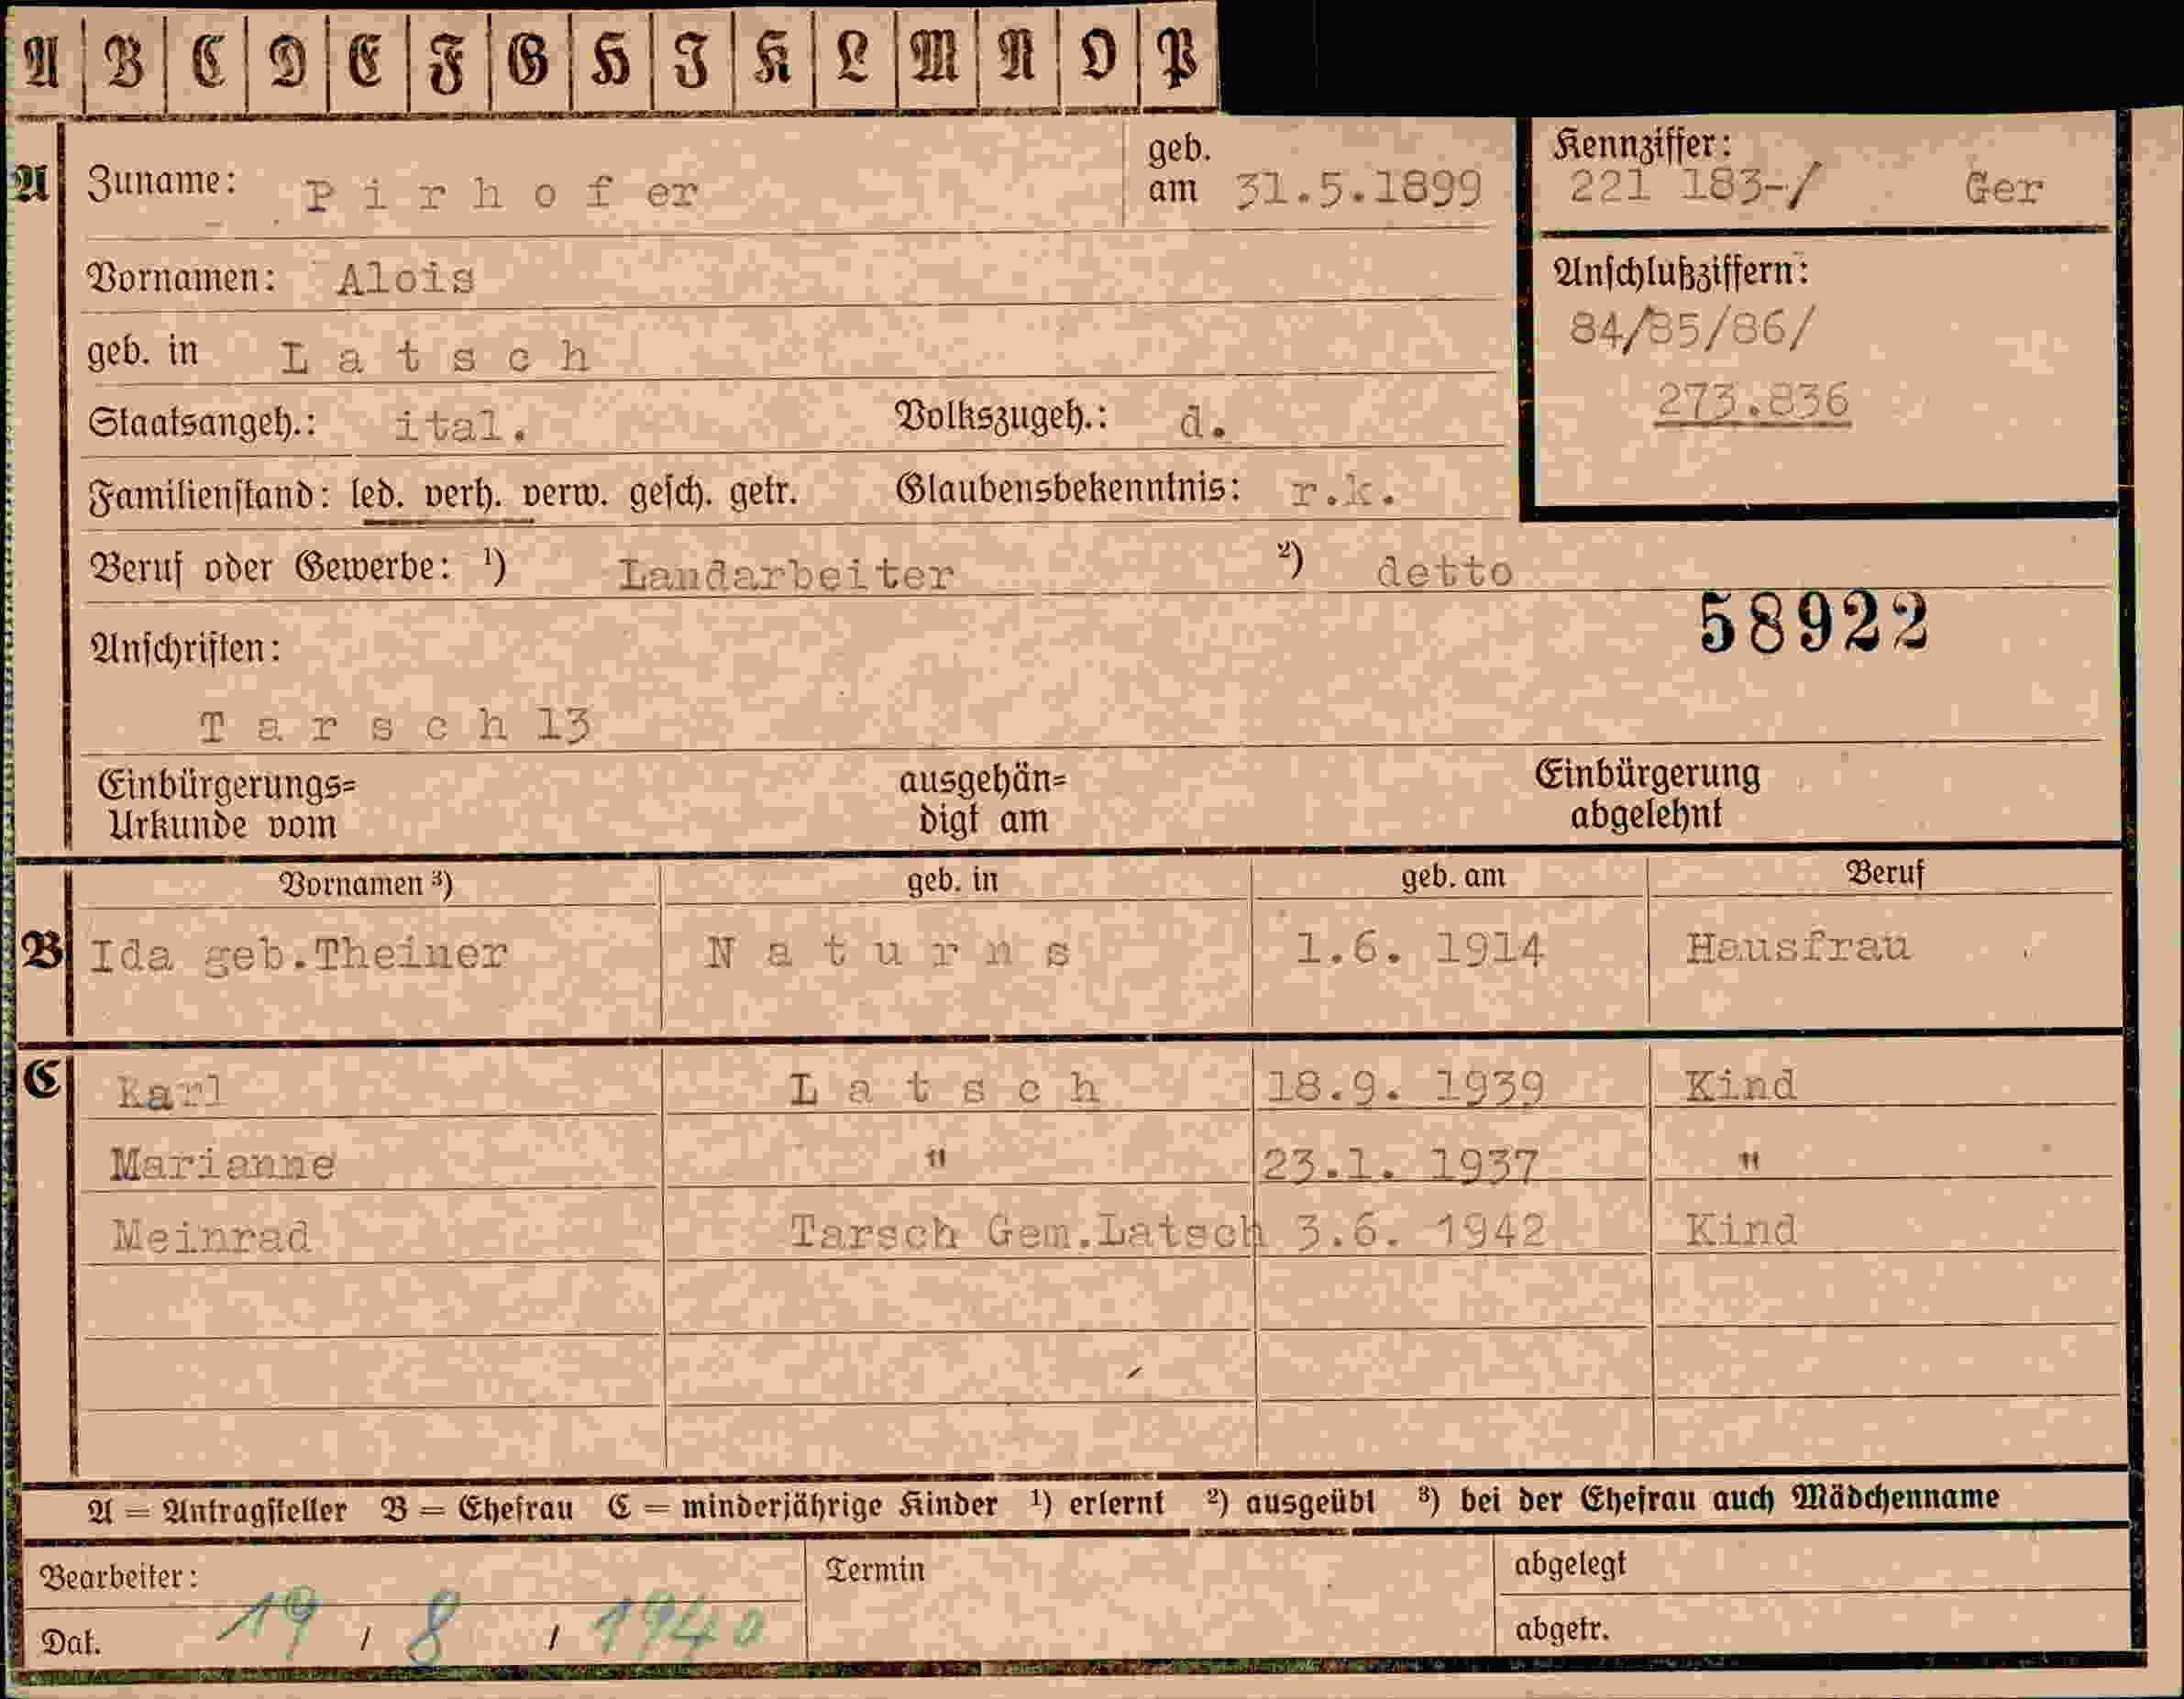 A B C D E F G H I K L M N O P
A Zuname: Pirhofer geb. am 31.5.1899
Kennziffer: 221 183-/ Ger
Vornamen: Alois
Anschlußziffern:
84/85/86/
273.836
geb. in Latsch
Staatsangeh.: ital. Volkszugeh.: d.
Familienstand: led. verh. verw. gesch. getr. Glaubensbekenntnis: r.k.
Beruf oder Gewerbe: 1) Landarbeiter 2) detto
58922
Anschriften:
Tarsch 13
Einbürgerungs= ausgehän= Einbürgerung
Urkunde vom digt am abgelehnt
Vornamen 3) geb. in geb. am Beruf
B Ida geb.Theiner Naturns 1.6. 1914 Hausfrau
C Karl Latsch 18.9. 1939 Kind
Marianne " 23.1. 1937 "
Meinrad Tarsch Gem.Latsch 3.6. 1942 Kind
A = Antragsteller B = Ehefrau C = minderjährige Kinder 1) erlernt 2) ausgeübt 3) bei der Ehefrau auch Mädchenname
Bearbeiter: Termin abgelegt
Dat. 19 / 8 / 1940 abgetr.